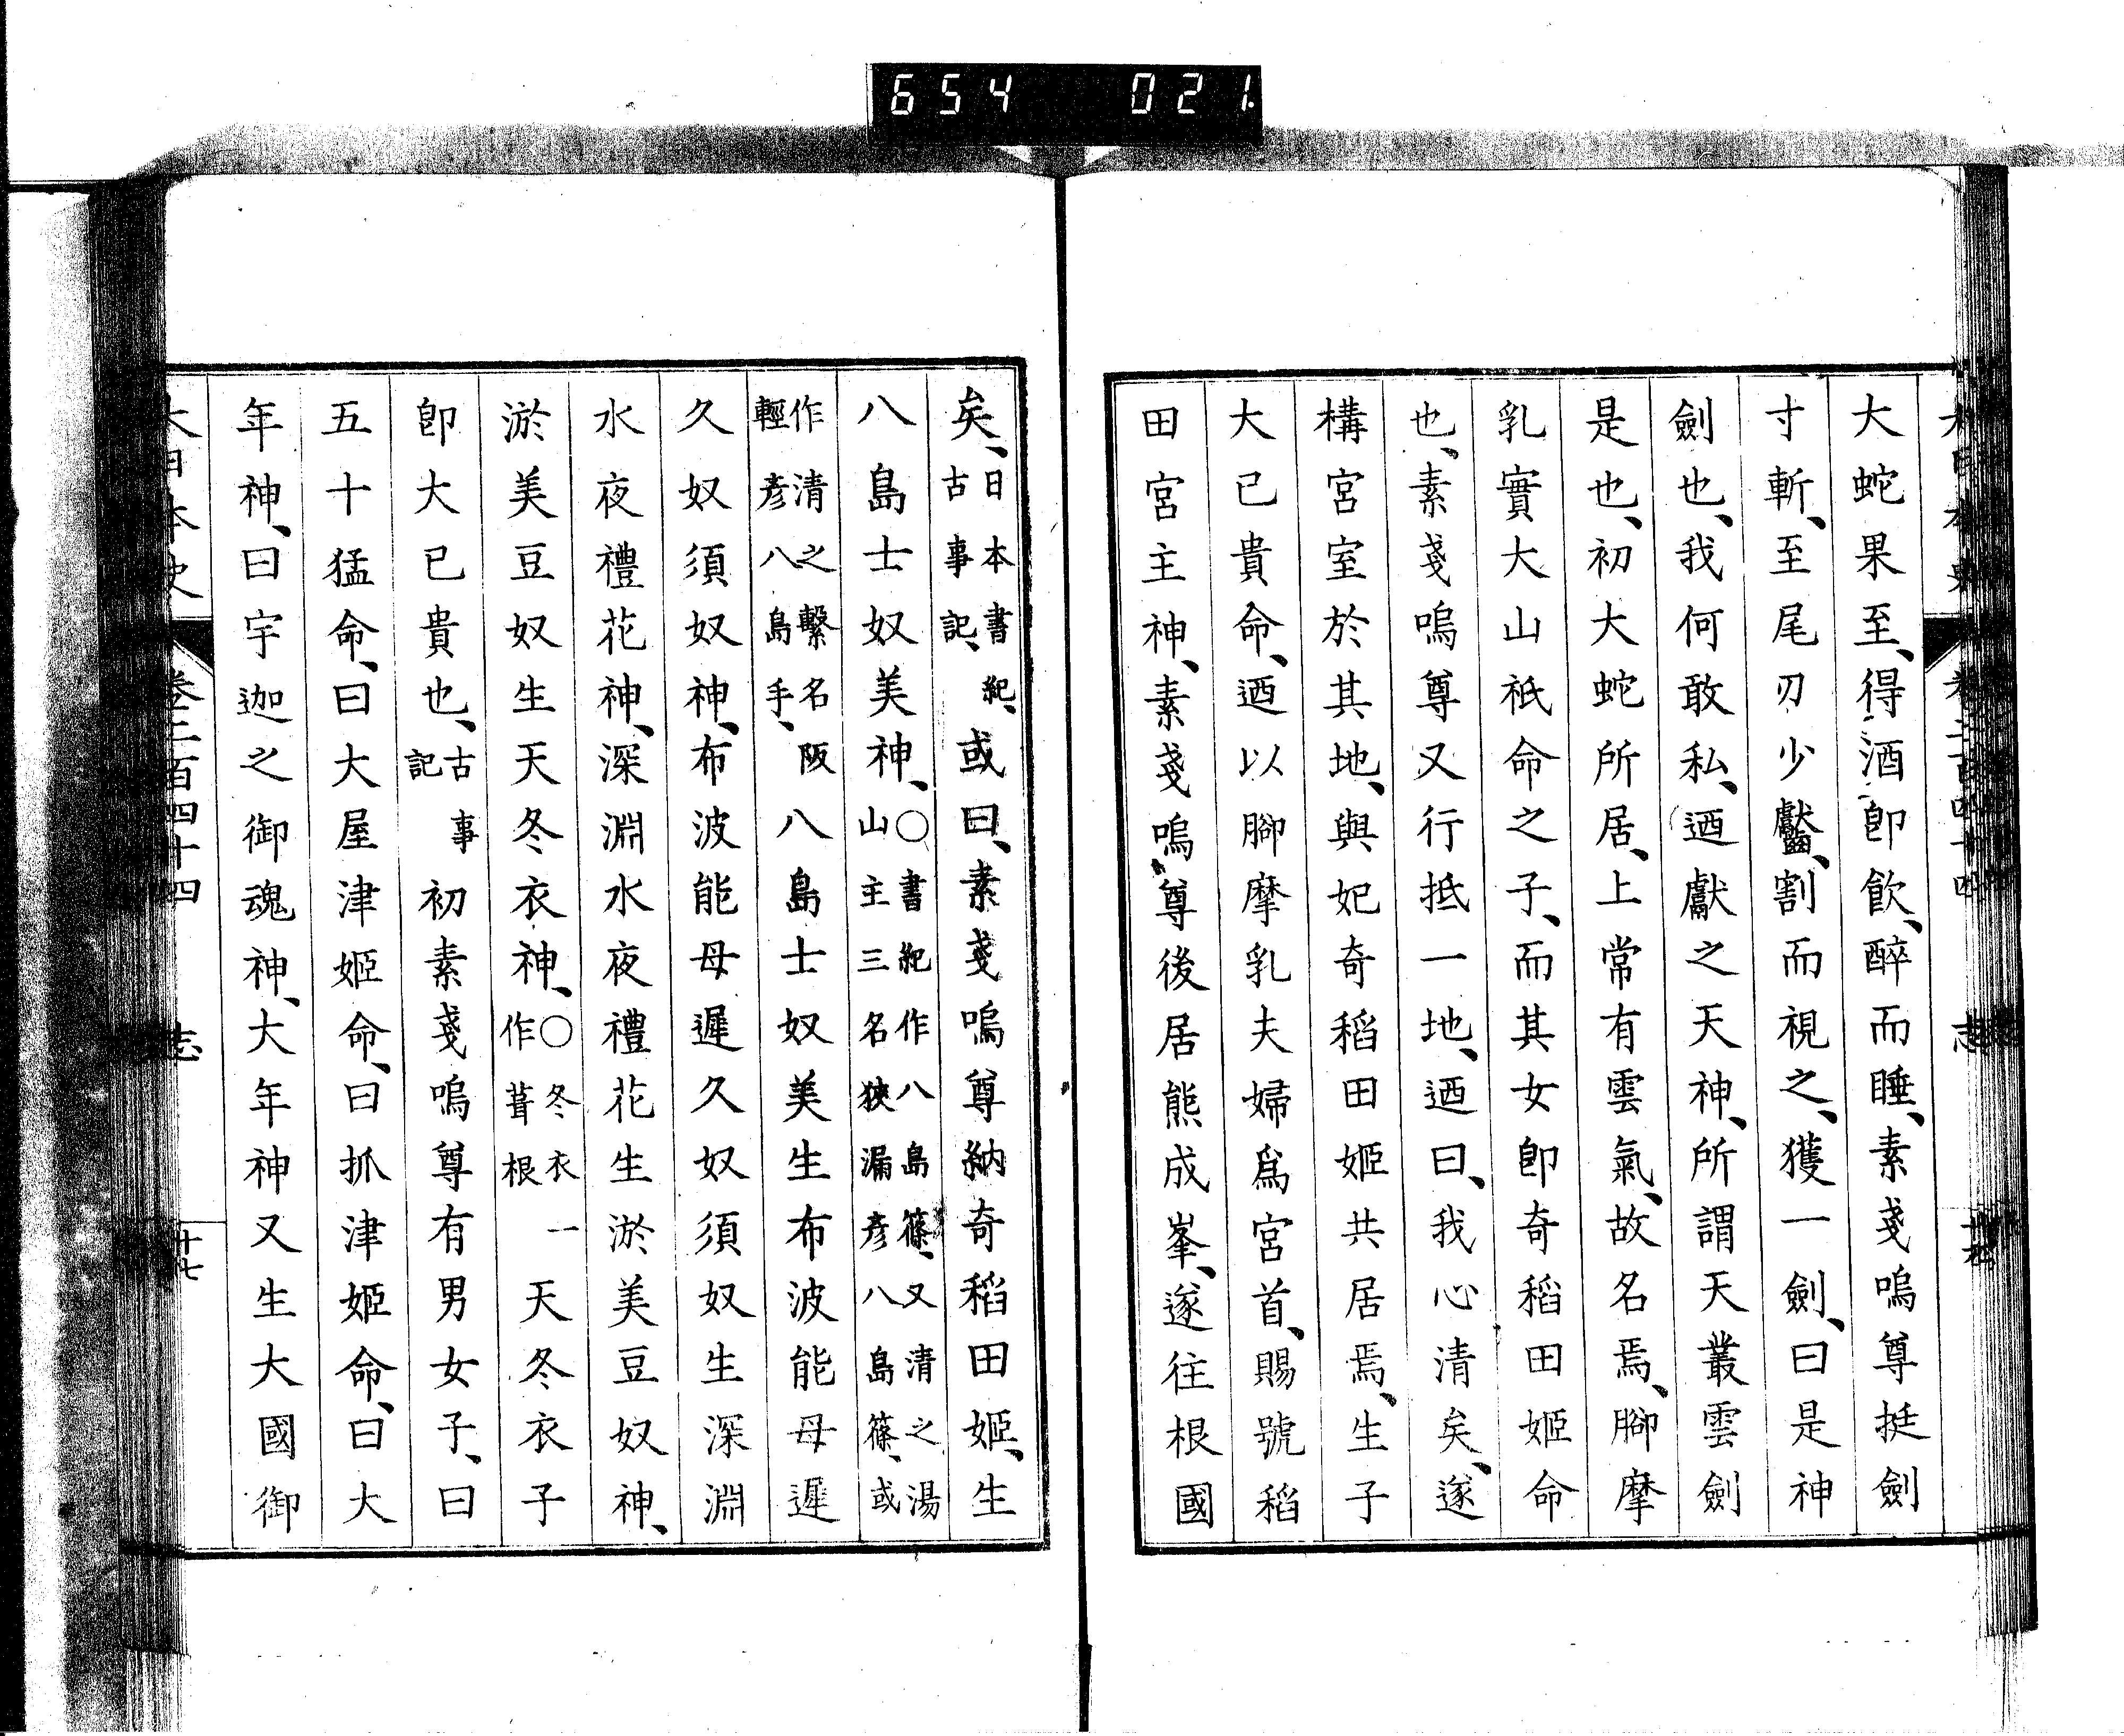 654 021
大蛇果至、得酒卽飮、醉而睡、素戔嗚尊挺劍
寸斬、至尾刃少齾、割而視之、獲一劍、曰是神
劍也、我何敢私、迺獻之天神、所謂天叢雲劍
是也、初大蛇所居、上常有雲氣、故名焉、腳摩
乳實大山祇命之子、而其女卽奇稻田姬命
也、素戔嗚尊又行抵一地、迺曰、我心清矣、遂
構宮室於其地、與妃奇稻田姬共居焉、生子
大已貴命、迺以腳摩乳夫婦爲宮首、賜號稻
田宮主神、素戔嗚尊後居熊成峯、遂往根國
矣、日本書紀、古事記、或曰、素戔嗚尊納奇稻田姬、生
八島士奴美神、○書紀作八島篠、又清之湯山主三名狹漏彥八島篠、或
作清之繫名阪輕彥八島手、八島士奴美生布波能母遲
久奴須奴神、布波能母遲久奴須奴生深淵
水夜禮花神、深淵水夜禮花生淤美豆奴神、
淤美豆奴生天冬衣神、○冬衣一作葺根天冬衣子
卽大已貴也、古事記初素戔嗚尊有男女子、曰
五十猛命、曰大屋津姬命、曰抓津姬命、曰大
年神、曰宇迦之御魂神、大年神又生大國御
大日本史 卷二百四十四 志 十七